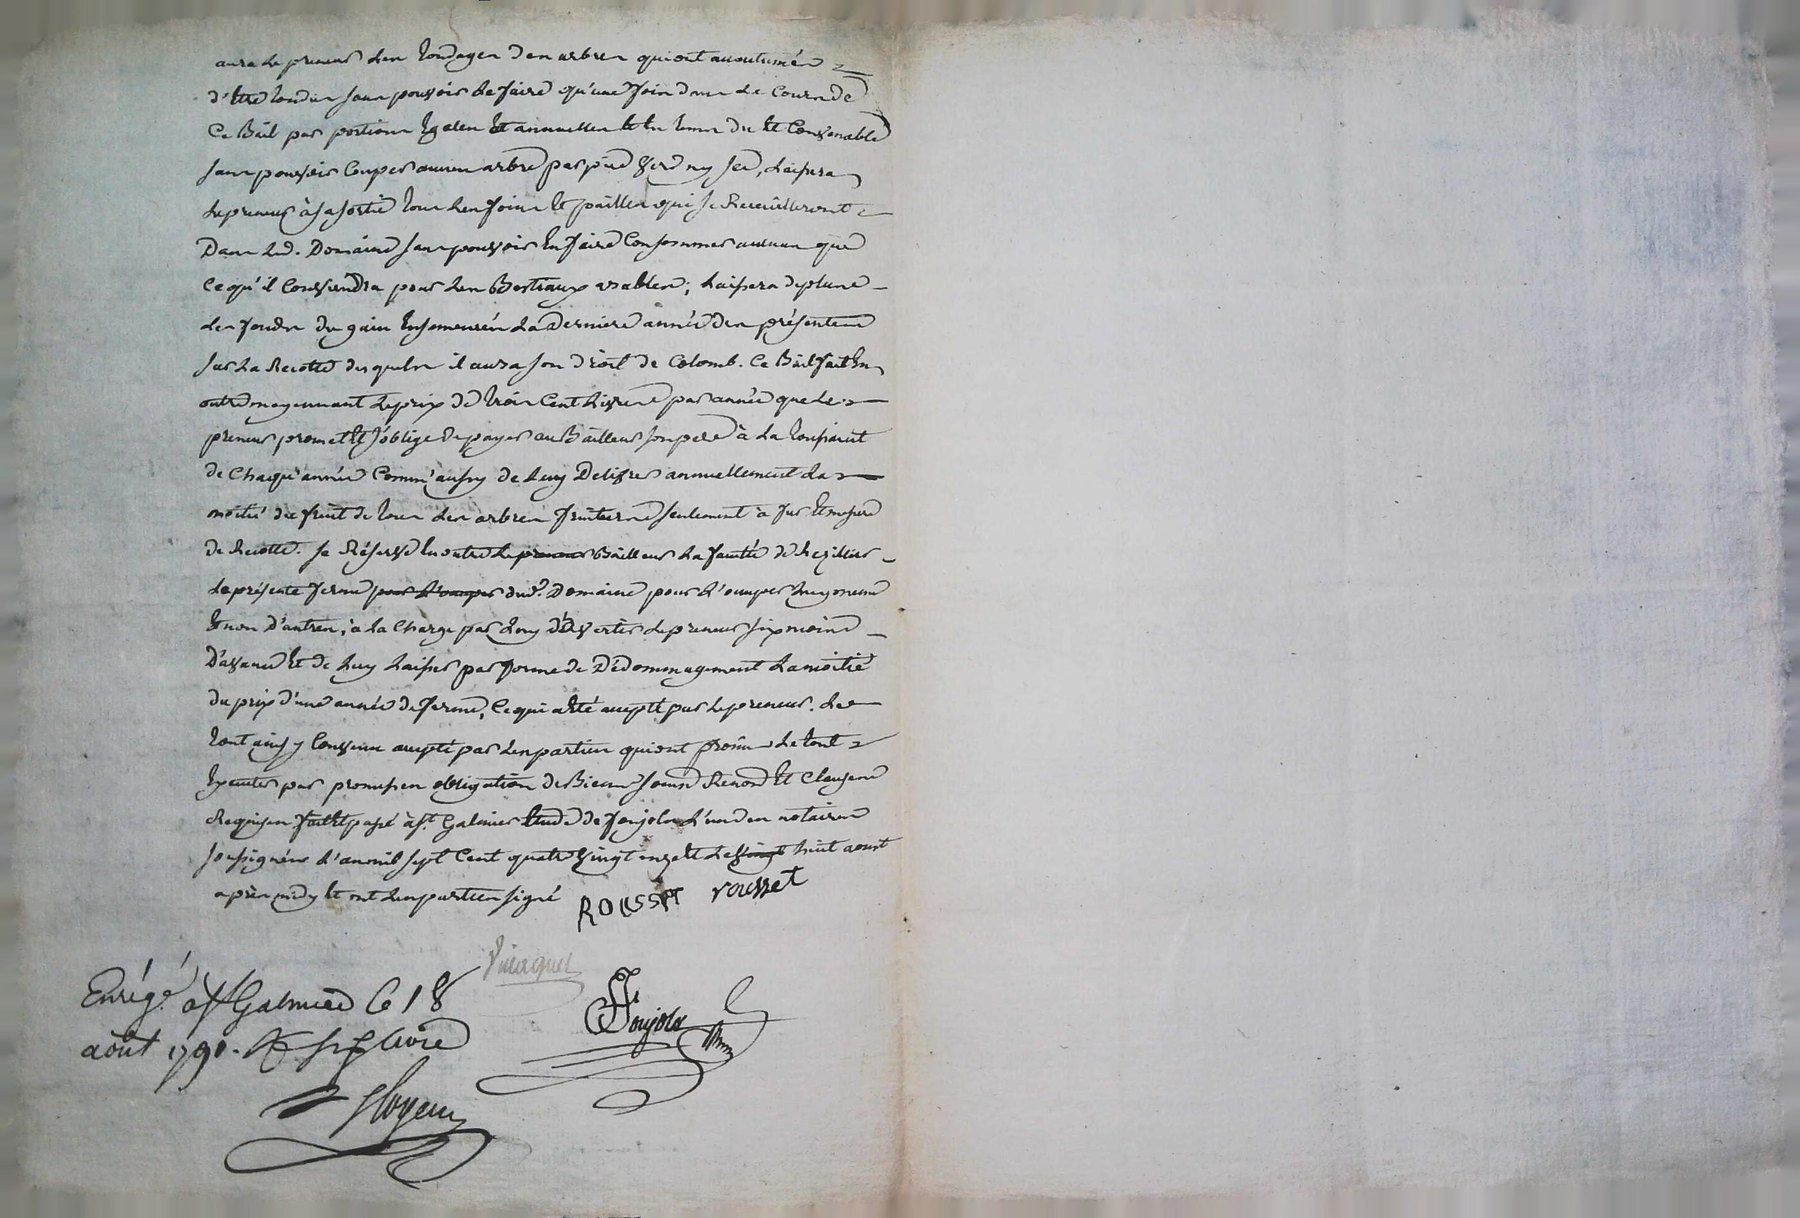 aura le preneur les tondages des arbres qui ont acoutumés
d'être tondus sans pouvoir le faire qu'une fois dans le cours de
Ce Bail par portions Egales Et annuelles Et En tems du Et Convenable
sans pouvoir Couper aucun arbre par pied verd ny sec, Laissera
le preneur à sa sortie tous les foins Et pailles qui se Recueilleront
Dans led. Domaine sans pouvoir En faire Consommer aucun que
Ce qu'il Conviendra pour les Bestiaux arables; Laissera de plus
les fonds du gain Ensemencés La Derniere année des présentes
sur La Recolte desquels il aura son droit de Colomb. Ce Bail fait En
outre moyennant le prix de trois Cent Livres par année que le
preneur promet Et s'oblige de payer au Bailleur son pere à La toussaint
de Chaqu'année Comm'aussy de Luy Delivrer annuellement La
moitié du fruit de tous les arbres fruitiers seulement à fur Et mesure
de Recolte. se Réserve En outre le preneur Bailleur La faculté de Resillier
La présente ferme pour L'occuper dud. Domaine pour L'occuper Luy
Et non D'autres, à la Charge par Luy d'avertir le preneur six mois
D'avance Et de Luy Laisser par forme de Dédommagement La moitié
du prix d'une année de ferme, Ce qui a été accepté par le preneur. Le
tout ainsy Convenu accepté par les parties qui ont promis le tout
Executer par promesses obligation de Biens soumis Renon Et Clauses
Requises fait Et passé à St. Galmier Etude de Foujols L'un des notaires
soussignés L'an mil sept Cent quatre vingt onze Et le vingt huit aoust
après midy Et ont Les parties signé ROUSSET rousset
Enrégé. à St Galmier le 18
août 1791.
Foujols